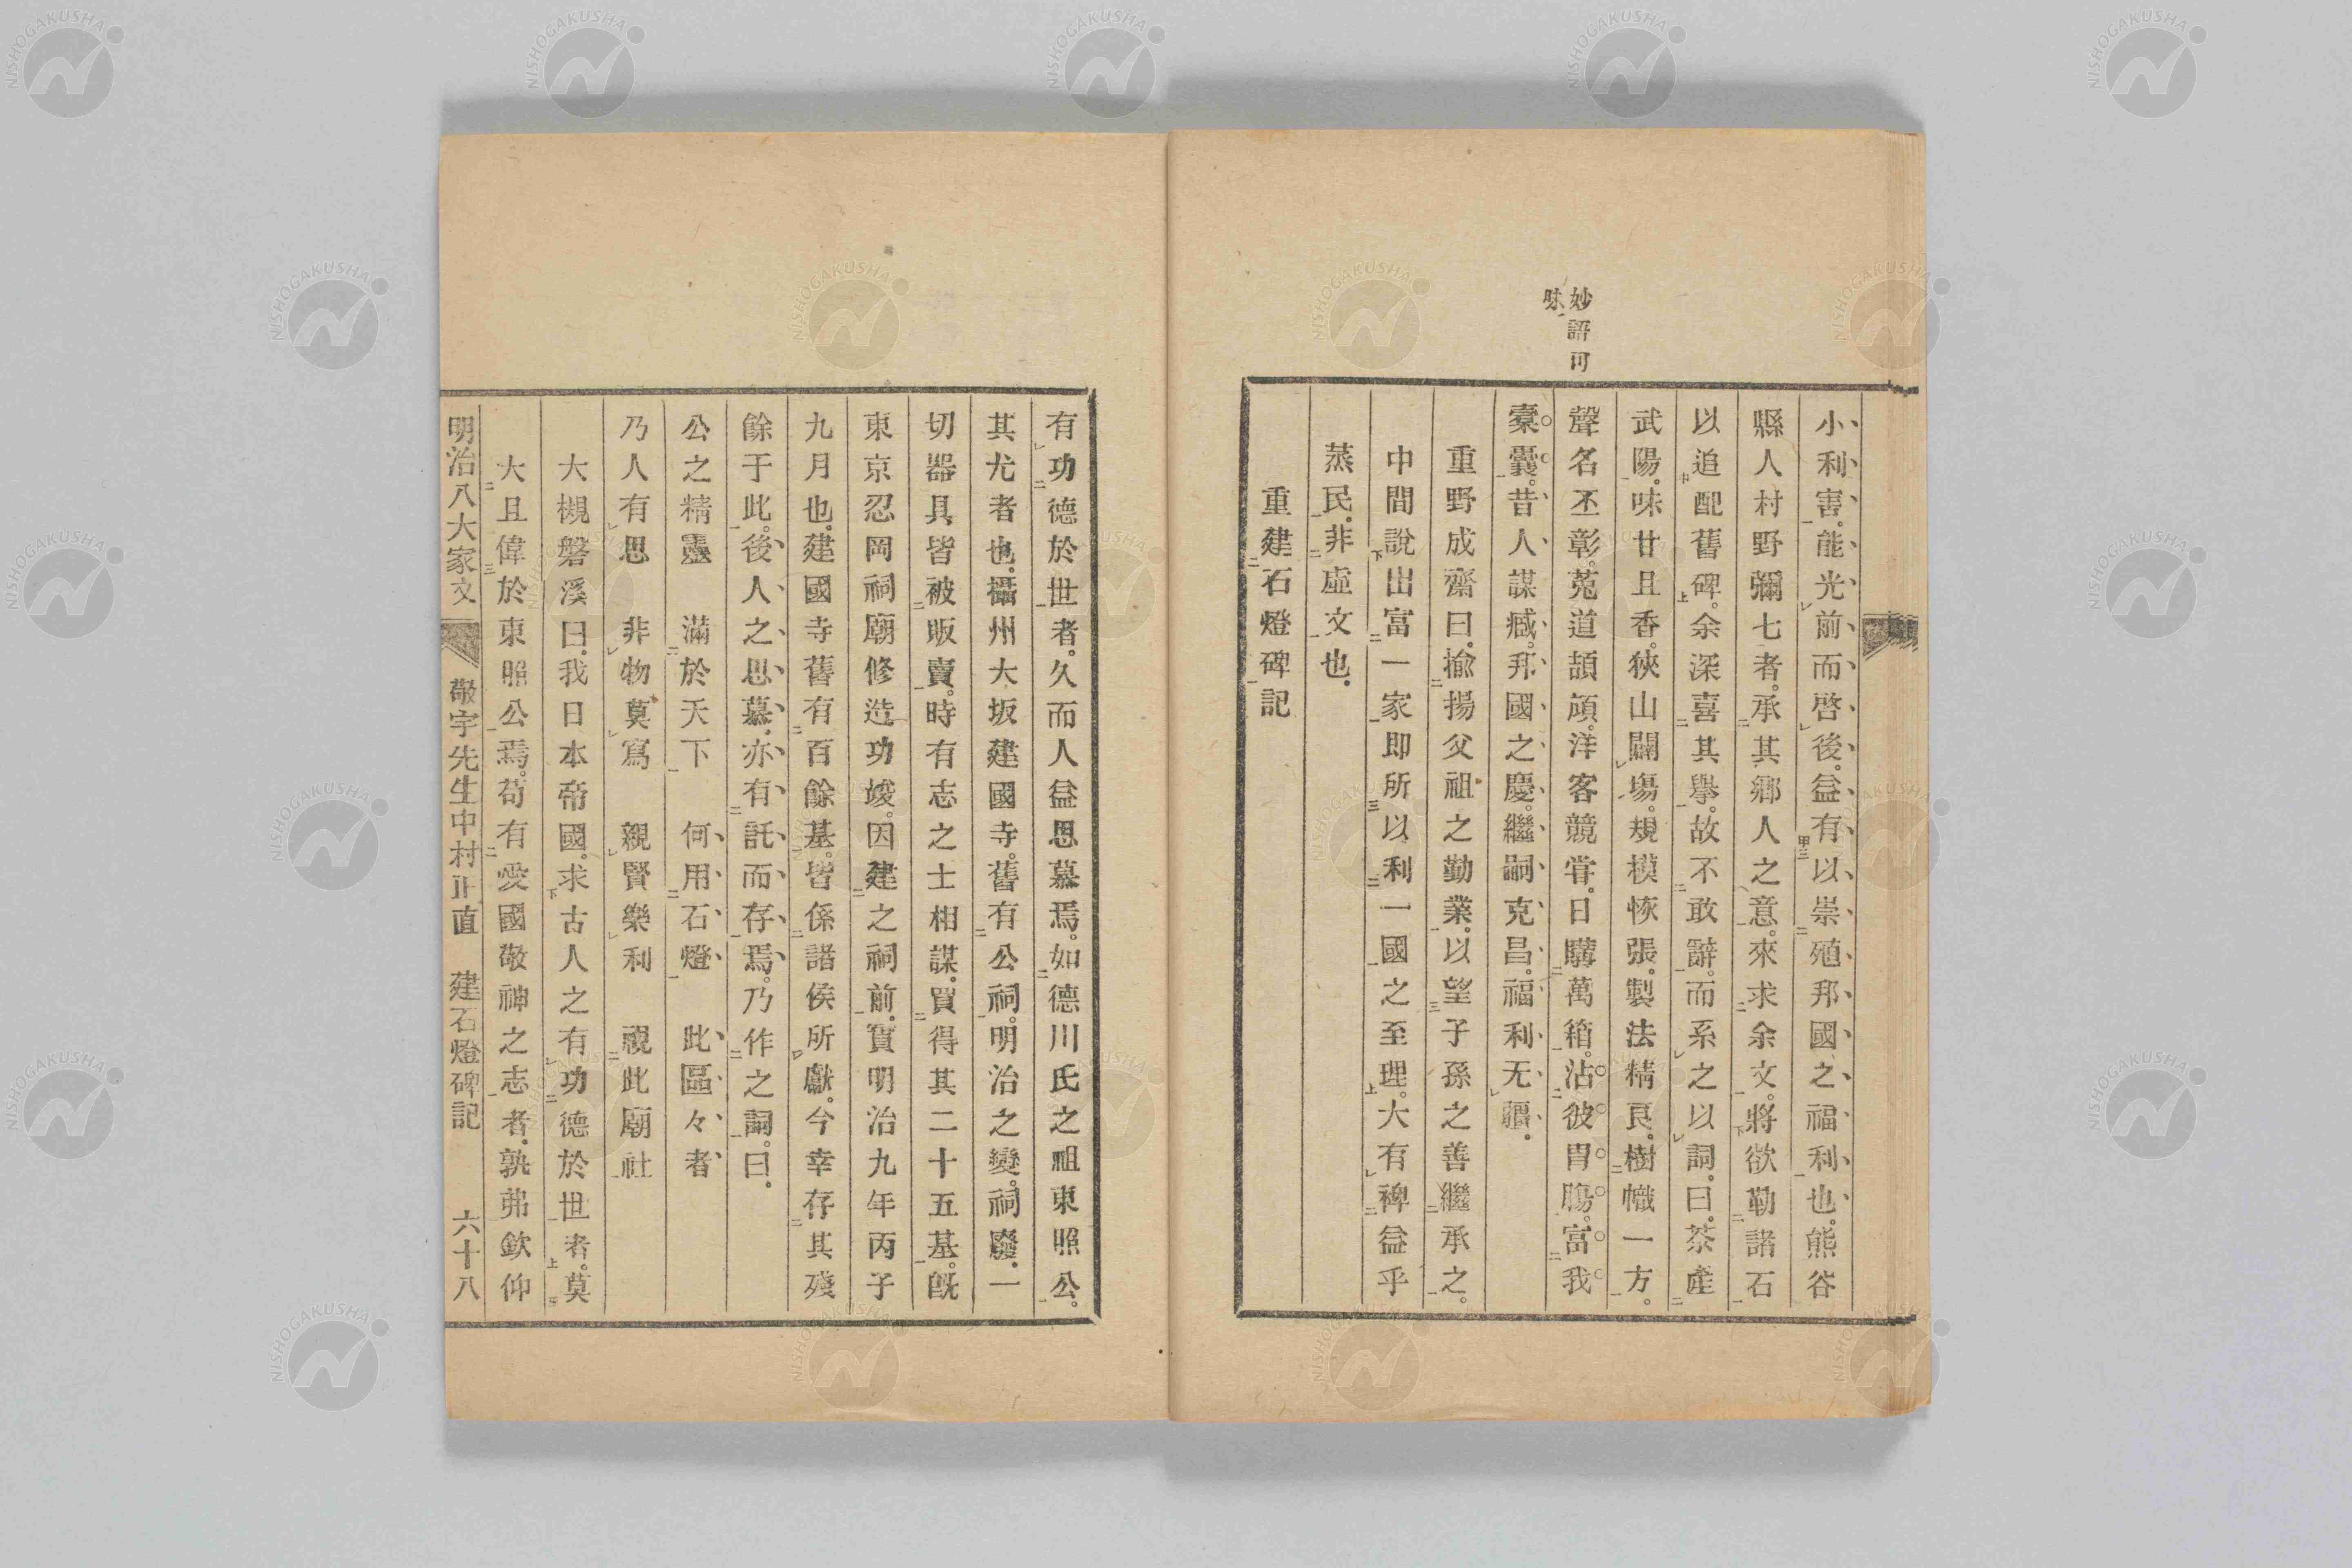 妙語可
味
小利害。能光前而啓後。益有以崇殖邦國之福利也。熊谷
縣人村野彌七者。承其鄕人之意。來求余文。將欲勒諸石
以追配舊碑。余深喜其擧。故不敢辭。而系之以詞。曰。茶產
武陽。味甘且香。狹山闢塲。規模恢張。製法精良。樹幟一方。
聲名丕彰。菟道頡頏。洋客競甞。日購萬箱。沾彼胃膓。富我
橐囊。昔人謀臧。邦國之慶。繼嗣克昌。福利无疆。
重野成齋曰。揄揚父祖之勤業。以望子孫之善繼承之。
中間說出富一家即所以利一國之至理。大有裨益乎
蒸民。非虛文也。
重建石燈碑記
有功德於世者。久而人益思慕焉。如德川氏之祖東照公。
其尤者也。攝州大坂建國寺。舊有公祠。明治之變。祠廢。一
切器具皆被販賣。時有志之士相謀。買得其二十五基。旣
東京忍岡祠廟修造功竣。因建之祠前。實明治九年丙子
九月也。建國寺舊有百餘基。皆係諸侯所獻。今幸存其殘
餘于此。後人之思慕。亦有託而存焉。乃作之詞。曰。
公之精靈　滿於天下　何用石燈。　此區々者
乃人有思　非物莫寫　親賢樂利　視此廟社
大槻磐溪曰。我日本帝國。求古人之有功德於世者。莫
大且偉於東照公焉。苟有愛國敬神之志者。孰弗欽仰
明治八大家文　敬宇先生中村正直　建石燈碑記　六十八
NISHOGAKUSHA